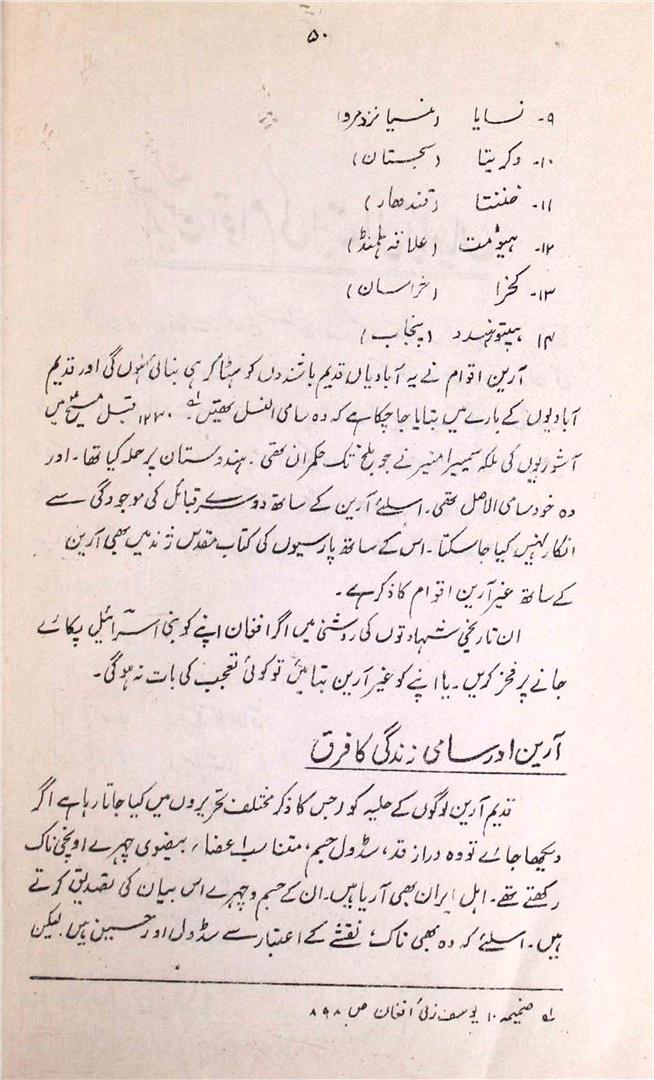 ۵۰
۹۔ نسایا (نسیا نزد مرو)
۱۰۔ وکریتا (سجستان)
۱۱۔ خننتا (قندھار)
۱۲۔ ہیومت (علاقہ ہلمنڈ)
۱۳۔ کخرا (خراسان)
۱۴۔ ہپتوہندد (پنجاب)
آرین اقوام نے یہ آبادیاں قدیم باشندوں کو ہٹا کر ہی بنائی ہوں گی اور قدیم
آبادیوں کے بارے میں بتایا جاچکا ہے کہ وہ سامی النسل تھیں ۱؎۔ ۱۲۳۰ قبل مسیح میں
آشوریوں کی ملکہ سمیرامنیر نے جو بلخ تک حکمران تھی۔ ہندوستان پر حملہ کیا تھا۔ اور
وہ خود سامی الاصل تھی۔ اسلئے آرین کے ساتھ دوسرے قبائل کی موجودگی سے
انکار نہیں کیا جاسکتا۔ اس کے ساتھ پارسیوں کی کتاب مقدس ژند میں بھی آرین
کے ساتھ غیر آرین اقوام کا ذکر ہے۔
ان تاریخی شہادتوں کی روشنی میں اگر افغان اپنے کو بنی اسرائیل پکارے
جانے پر فخر کریں۔ یا اپنے کو غیر آرین بتائیں تو کوئی تعجب کی بات نہ ہوگی۔
آرین اور سامی زندگی کا فرق
قدیم آرین لوگوں کے حلیہ کو (جس کا ذکر مختلف تحریروں میں کیا جاتا رہا ہے اگر
دیکھا جائے تو وہ دراز قد، سڈول جسم، متناسب اعضاء بیضوی چہرے اونچی ناک
رکھتے تھے۔ اہل ایران بھی آریا ہیں۔ ان کے جسم و چہرے اس بیان کی تصدیق کرتے
ہیں۔ اسلئے کہ وہ بھی ناک نقشے کے اعتبار سے سڈول اور حسین ہیں لیکن
۱؎ ضمیمہ ۱۰ یوسف زئی افغان ص ۸۹۸